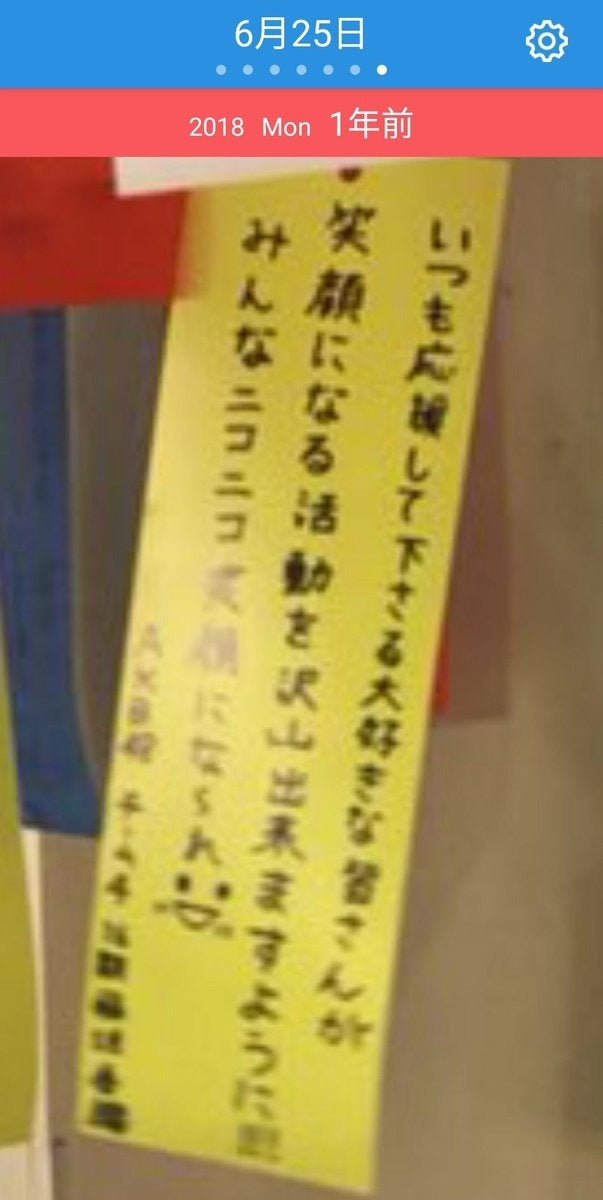 6月25日
2018 Mon 1年前
いつも応援して下さる大好きな皆さんが
笑顔になる活動を沢山出来ますように
みんなニコニコ笑顔になぁれ
AKB48 チーム8